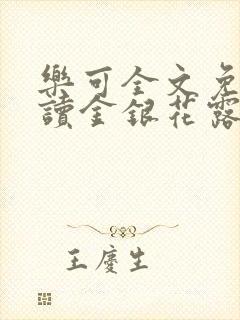 樂可全文免
讀金銀花露
王慶生